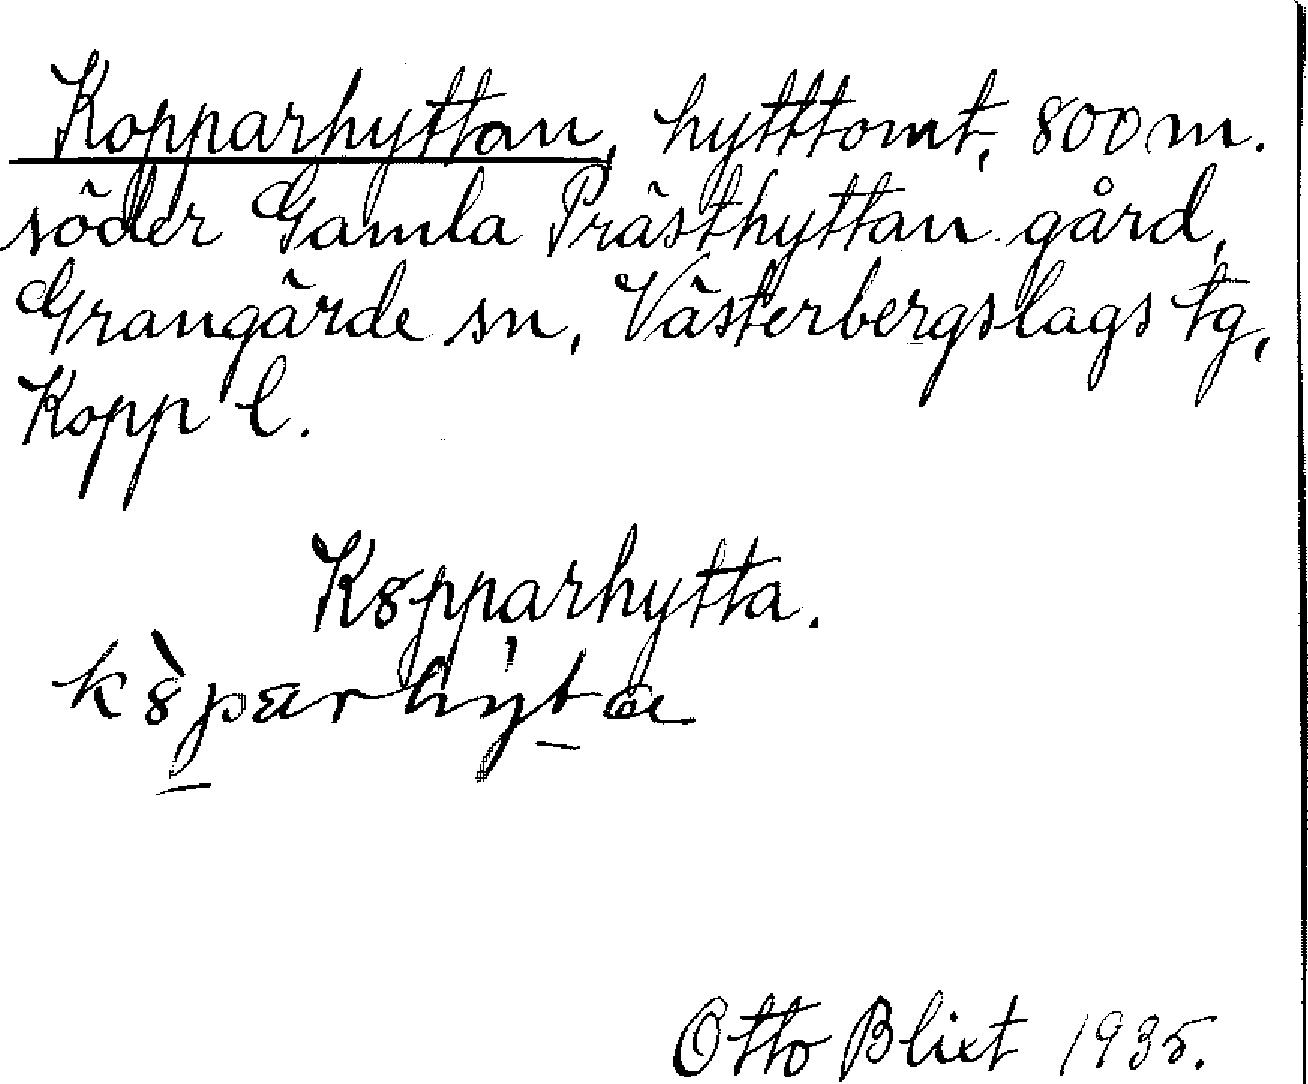 Kopparhyttan, hytttomt, 800 m.
söder Gamla Prästhyttan gård,
Grangärde sn, Västerbergslags tg,
Kopp l.
K8pparhytta.
k8̀parhyta
Otto Blixt 1935.